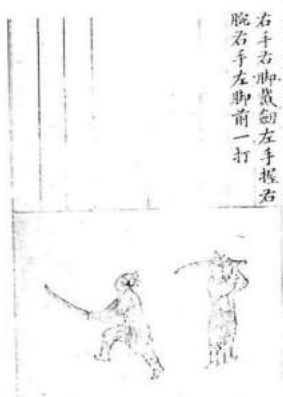 右手右脚戴劎左手握右
腕右手左脚前一打